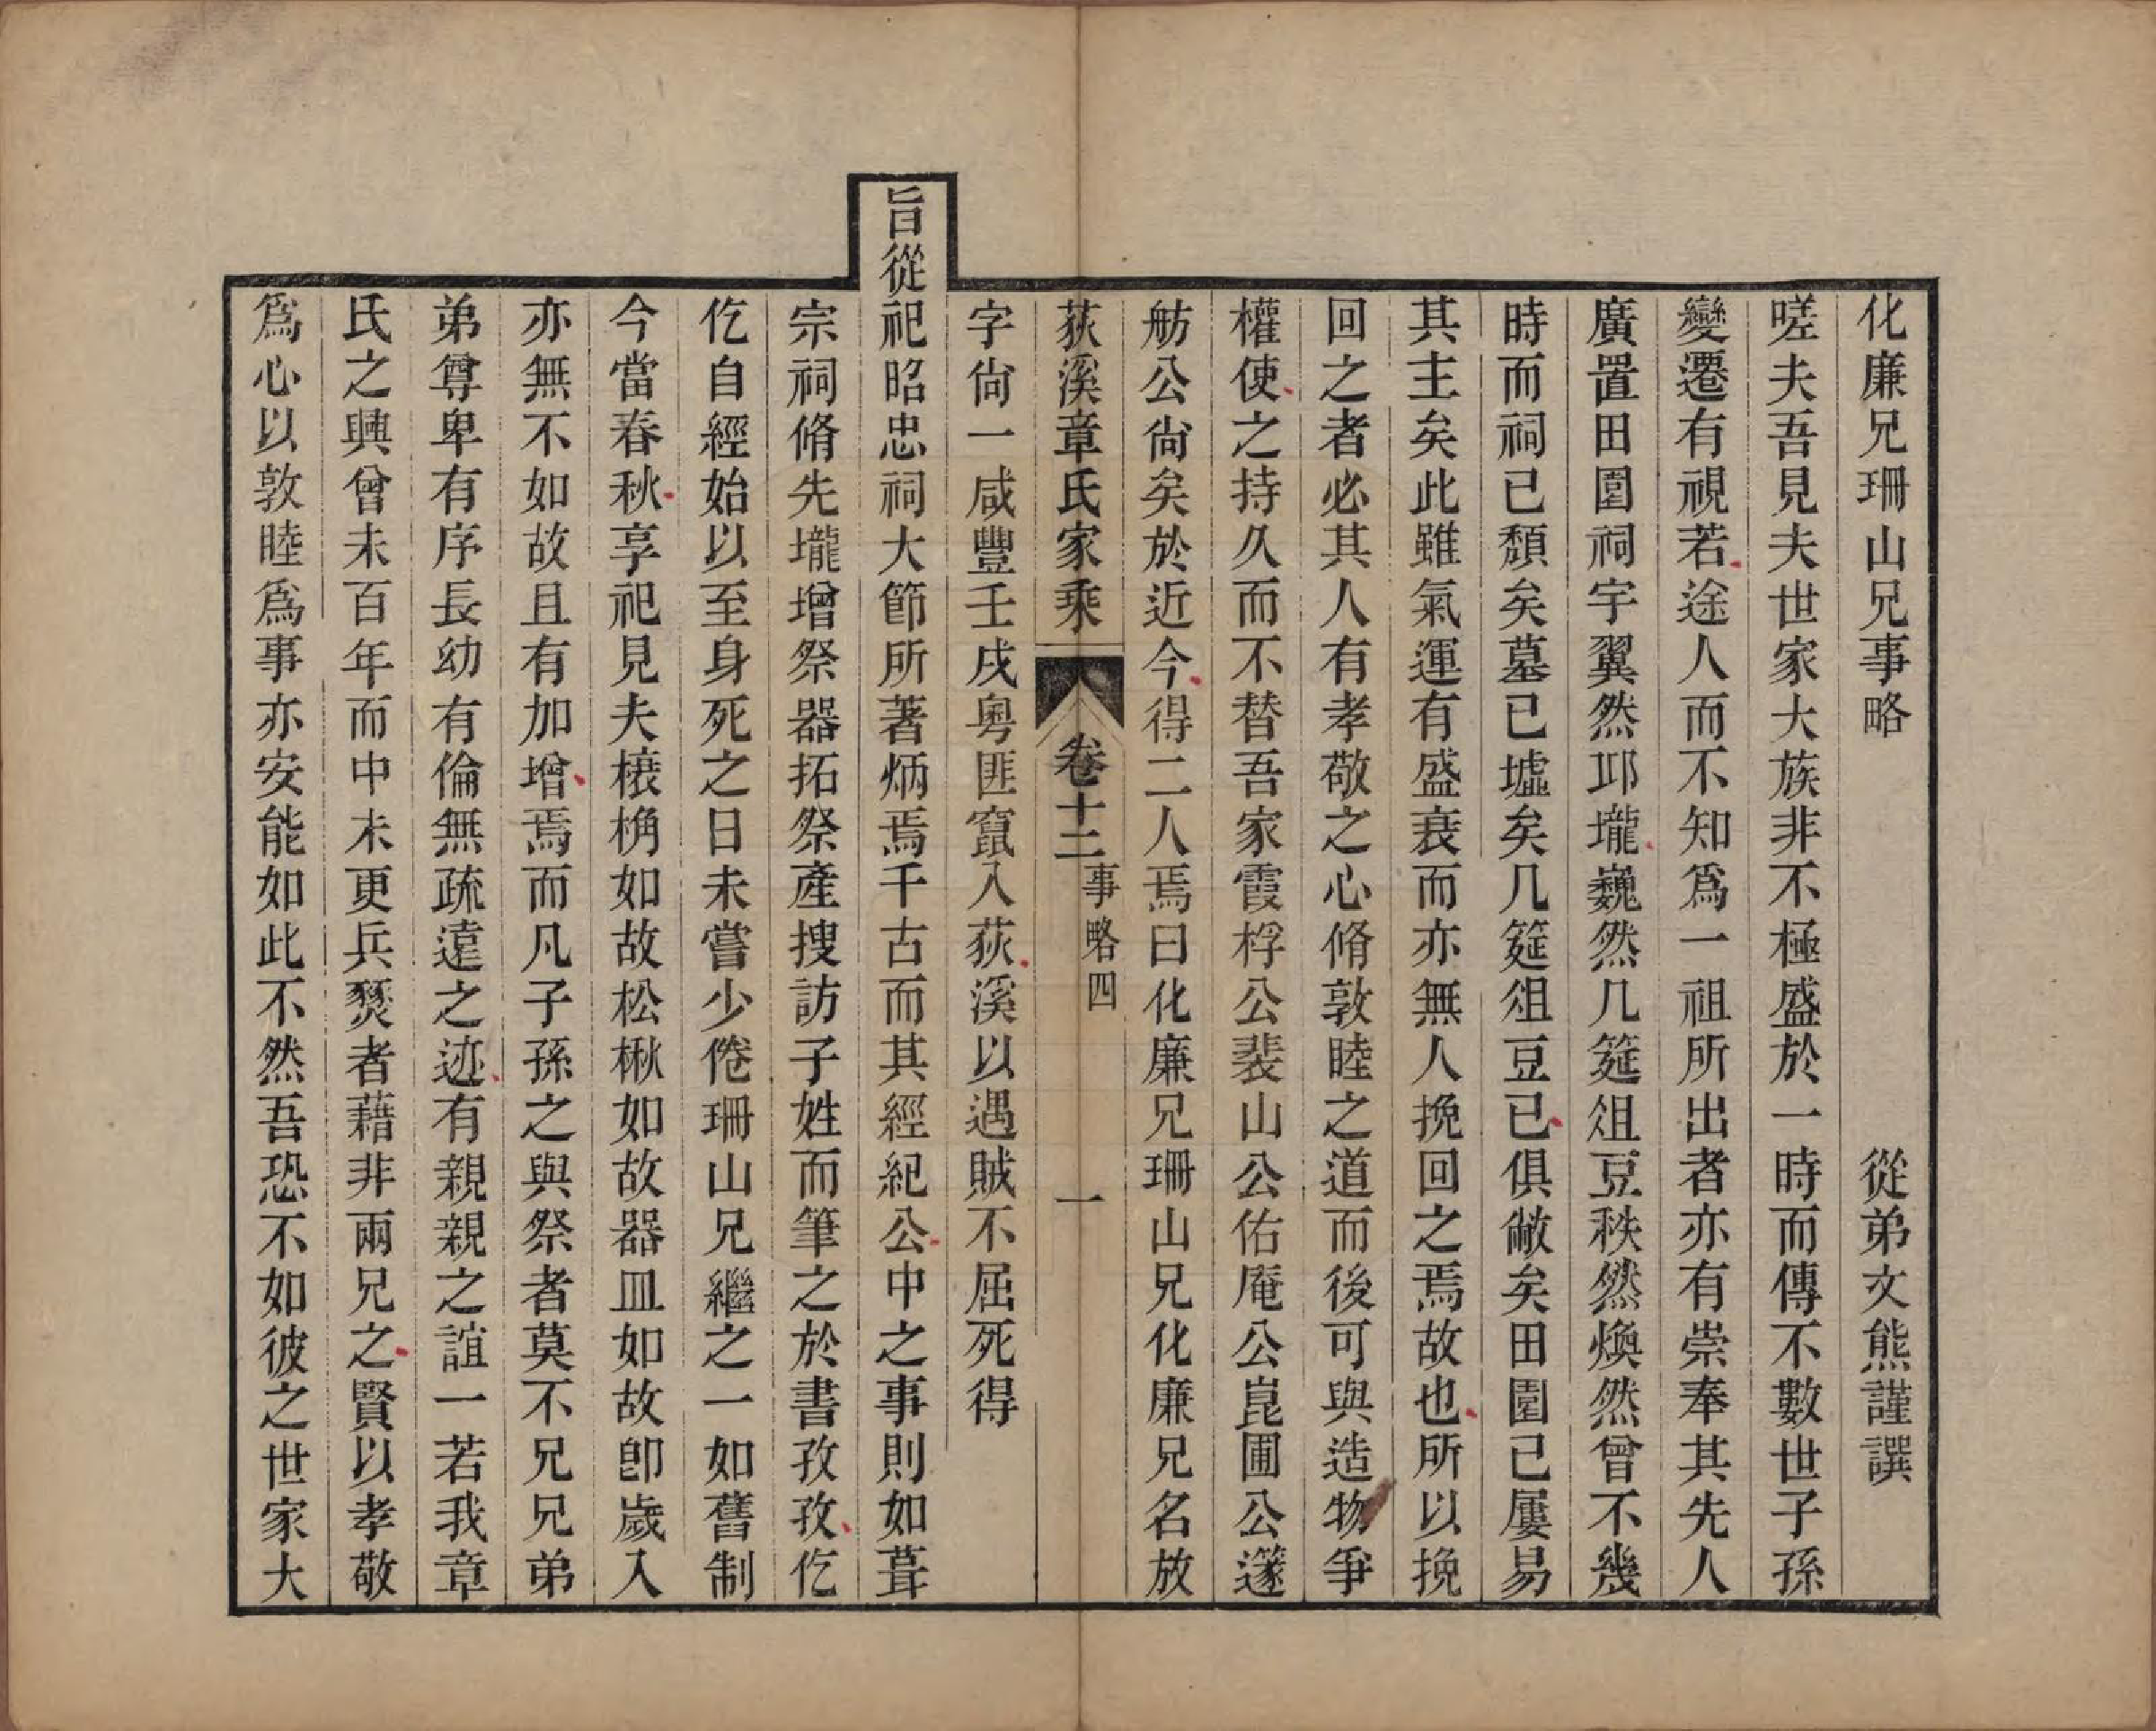 化廉兄珊山兄事略 從弟文熊謹譔
嗟夫吾見夫世家大族非不極盛於一時而傳不數世子孫
變遷有視若途人而不知爲一祖所出者亦有崇奉其先人
廣置田園祠宇翼然邱壠巍然几筵俎豆秩然煥然曾不幾
時而祠已頽矣墓已墟矣几筵俎豆已俱敝矣田園已屢易
其主矣此雖氣運有盛衰而亦無人挽回之焉故也所以挽
回之者必其人有孝敬之心脩敦睦之道而後可與造物爭
權使之持久而不替吾家霞桴公裴山公佑庵公崑圃公蓬
舫公尙矣於近今得二人焉曰化廉兄珊山兄化廉兄名放
荻溪章氏家乘 卷十二 事略四 一
字尙一咸豐壬戌粤匪竄入荻溪以遇賊不屈死得
旨從祀昭忠祠大節所著炳焉千古而其經紀公中之事則如葺
宗祠脩先壠增祭器拓祭產搜訪子姓而筆之於書孜孜仡
仡自經始以至身死之日未嘗少倦珊山兄繼之一如舊制
今當春秋享祀見夫榱桷如故松楸如故器皿如故卽歲入
亦無不如故且有加增焉而凡子孫之與祭者莫不兄兄弟
弟尊卑有序長幼有倫無疏遠之迹有親親之誼一若我章
氏之興曾未百年而中未更兵燹者藉非兩兄之賢以孝敬
爲心以敦睦爲事亦安能如此不然吾恐不如彼之世家大